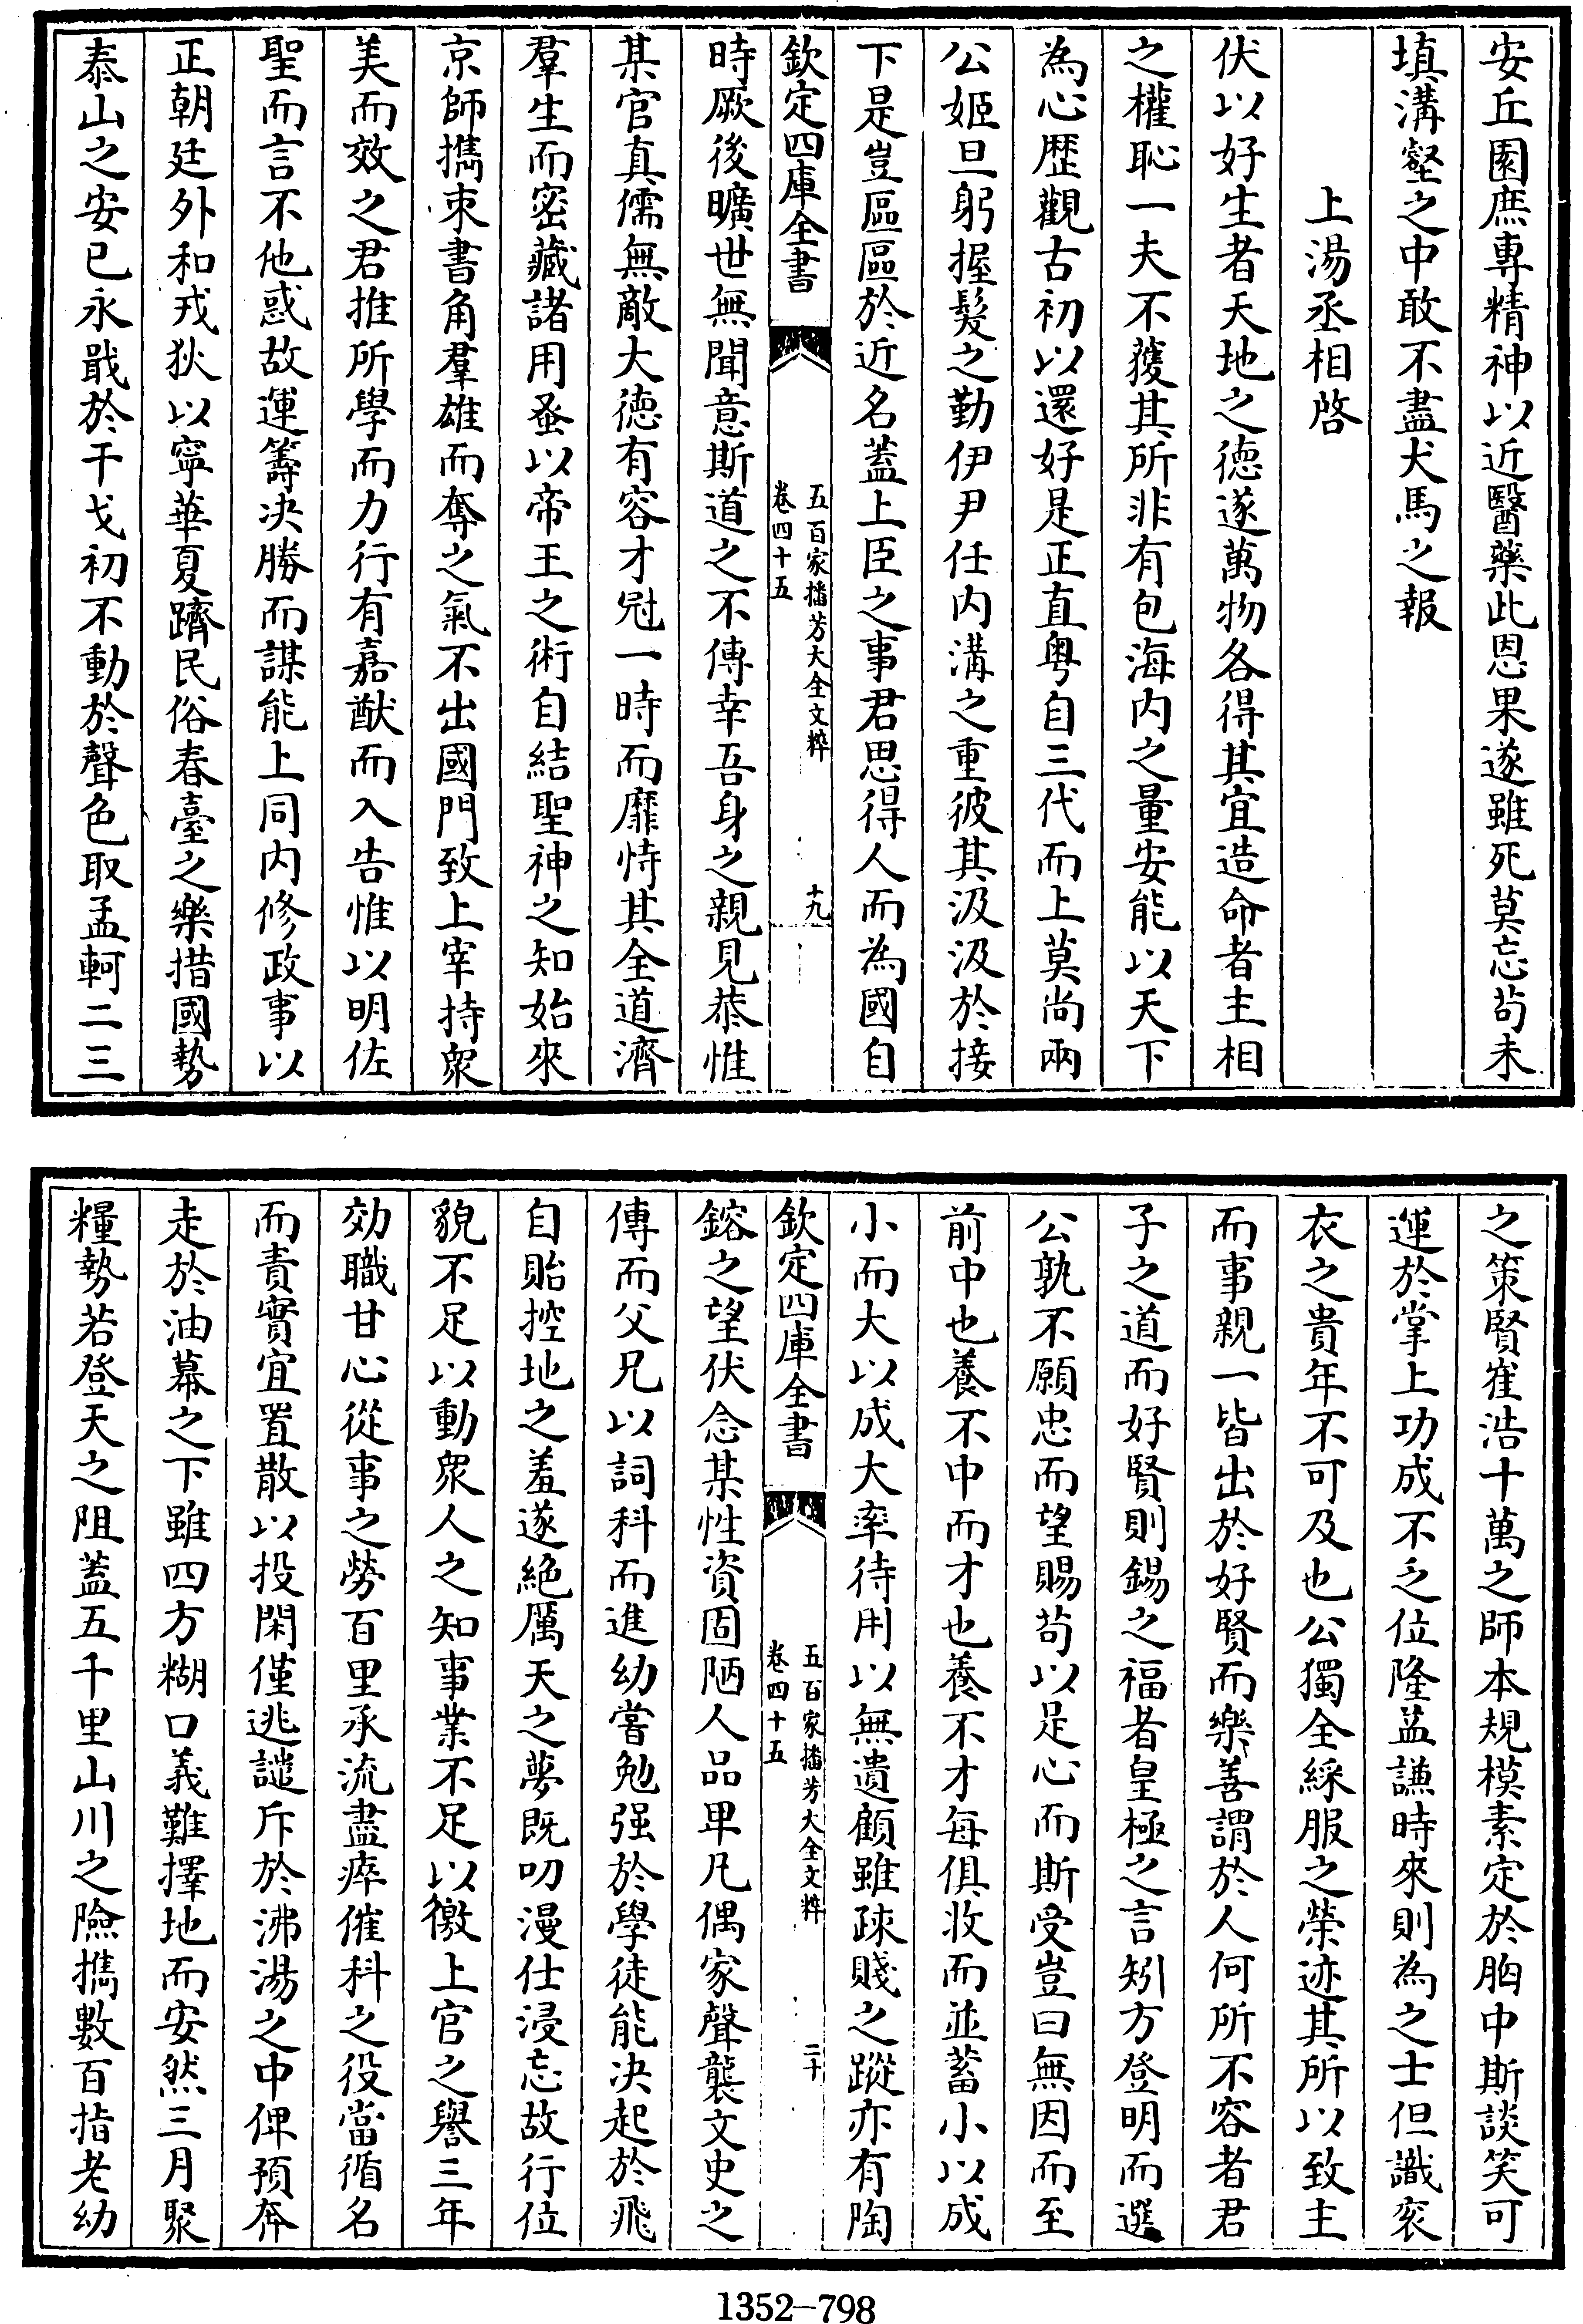 安丘園庶專精神以近醫藥此恩果遂雖死莫忘茍未
填溝壑之中敢不盡犬馬之報
上湯丞相啓
伏以好生者天地之德遂萬物各得其宜造命者主相
之權恥一夫不獲其所非有包海内之量安能以天下
為心歴觀古初以還好是正直粤自三代而上莫尚兩
公姬旦躬握髮之勤伊尹任内溝之重彼其汲汲於接
下是豈區區於近名蓋上臣之事君思得人而為國自
欽定四庫全書
五百家播芳大全文粹
卷四十五
十九
時厥後曠世無聞意斯道之不傳幸吾身之親見恭惟
某官真儒無敵大德有容才冠一時而靡恃其全道濟
羣生而密藏諸用蚤以帝王之術自結聖神之知始來
京師攜束書角羣雄而奪之氣不出國門致上宰持衆
美而效之君推所學而力行有嘉猷而入告惟以明佐
聖而言不他惑故運籌决勝而謀能上同内修政事以
正朝廷外和戎狄以寧華夏躋民俗春臺之樂措國勢
泰山之安已永戢於干戈初不動於聲色取孟軻二三
之策賢崔浩十萬之師本規模素定於胸中斯談笑可
運於掌上功成不乏位隆益謙時來則為之士但識衮
衣之貴年不可及也公獨全綵服之榮迹其所以致主
而事親一皆出於好賢而樂善謂於人何所不容者君
子之道而好賢則錫之福者皇極之言矧方登明而選
公孰不願忠而望賜茍以足心而斯受豈曰無因而至
前中也養不中而才也養不才每俱收而並蓄小以成
小而大以成大率待用以無遺顧雖疎賤之蹤亦有陶
欽定四庫全書
五百家播芳大全文粹
卷四十五
二十
鎔之望伏念某性資固陋人品卑凡偶家聲襲文史之
傳而父兄以詞科而進幼嘗勉强於學徒能决起於飛
自貽控地之羞遂絶厲天之夢既叨漫仕浸忘故行位
貌不足以動衆人之知事業不足以徼上官之譽三年
効職甘心從事之勞百里承流盡瘁催科之役當循名
而責實宜置散以投閑僅逃譴斥於沸湯之中俾預奔
走於油幕之下雖四方糊口義難擇地而安然三月聚
糧勢若登天之阻蓋五千里山川之險攜數百指老幼
1352-798